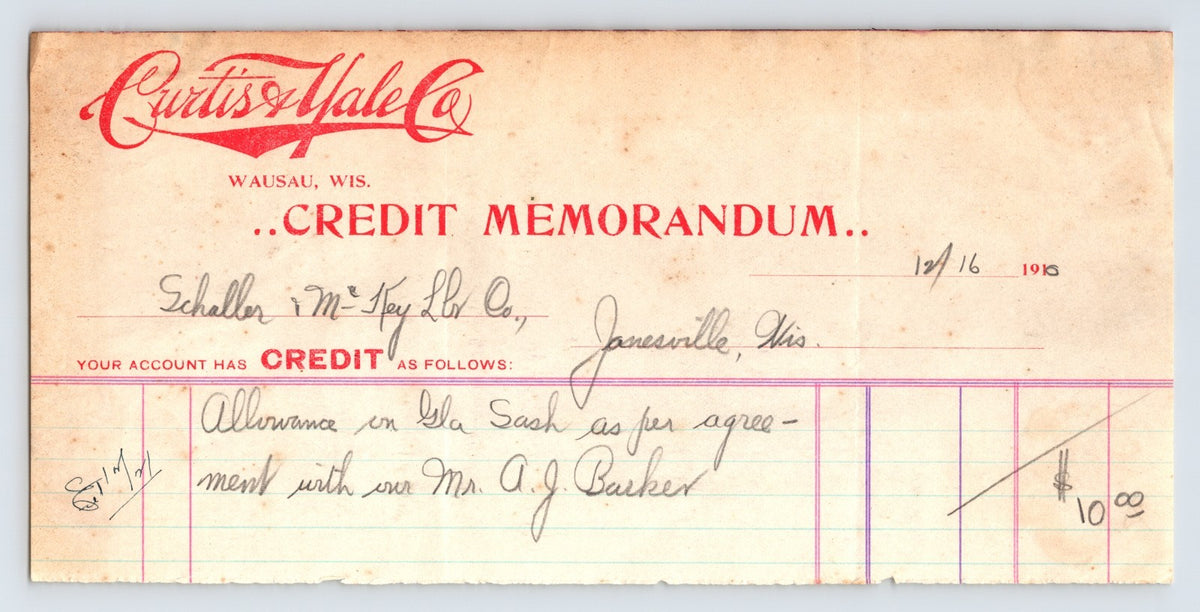 Curtis & Yale Co
WAUSAU, WIS.
..CREDIT MEMORANDUM..
12/16 1910
Schaller & Mc Key Lbr Co.,
Janesville, Wis.
YOUR ACCOUNT HAS CREDIT AS FOLLOWS:
Allowance on Gla Sash as per agree-
ment with our Mr. A. J. Barker
$ 10 00